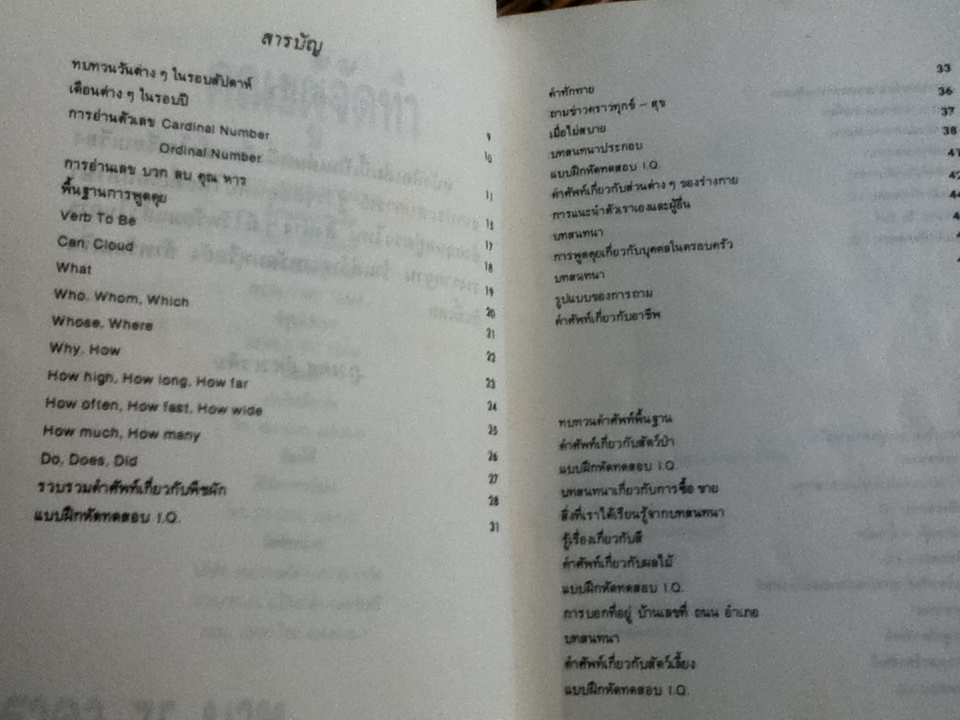 สารบัญ
ทบทวนวันต่าง ๆ ในรอบสัปดาห์ 9
เดือนต่าง ๆ ในรอบปี 10
การอ่านตัวเลข Cardinal Number 11
Ordinal Number
การอ่านเลข บวก ลบ คูณ หาร 15
พื้นฐานการพูดคุย 17
Verb To Be 18
Can, Cloud 19
What 20
Who, Whom, Which 21
Whose, Where 22
Why, How 23
How high, How long, How far 24
How often, How fast, How wide 25
How much, How many 26
Do, Does, Did 27
รวบรวมคำศัพท์เกี่ยวกับพืชผัก 28
แบบฝึกหัดทดสอบ I.Q. 31
คำทักทาย 33
ถามข่าวคราวทุกข์ – สุข 36
เมื่อไม่สบาย 37
บทสนทนาประกอบ 38
แบบฝึกหัดทดสอบ I.Q. 41
คำศัพท์เกี่ยวกับส่วนต่าง ๆ ของร่างกาย 42
การแนะนำตัวเราเองและผู้อื่น 44
บทสนทนา
การพูดคุยเกี่ยวกับบุคคลในครอบครัว
บทสนทนา
รูปแบบของการถาม
คำศัพท์เกี่ยวกับอาชีพ
ทบทวนคำศัพท์พื้นฐาน
คำศัพท์เกี่ยวกับสัตว์ป่า
แบบฝึกหัดทดสอบ I.Q.
บทสนทนาเกี่ยวกับการซื้อ ขาย
สิ่งที่เราได้เรียนรู้จากบทสนทนา
รู้เรื่องเกี่ยวกับสี
คำศัพท์เกี่ยวกับผลไม้
แบบฝึกหัดทดสอบ I.Q.
การบอกที่อยู่ บ้านเลขที่ ถนน อำเภอ
บทสนทนา
คำศัพท์เกี่ยวกับสัตว์เลี้ยง
แบบฝึกหัดทดสอบ I.Q.